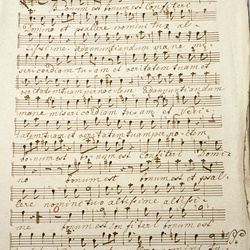 Bonum est bonum est confiteri
Domino et psallere nomini tuo al
tissime adanuntiandum mane mi
sericordiam tuam et veritatem tuam et
veritatem tuam per noctem adanuntiandum
mane misericordiam tuam et veri
tatem tuam et veritatem tuam per noctem
bonum est bonum est confiteri Domi
no bonum est bonum est et psal
lere nomini tuo altissime altissi
me bonum est confiteri bonum est